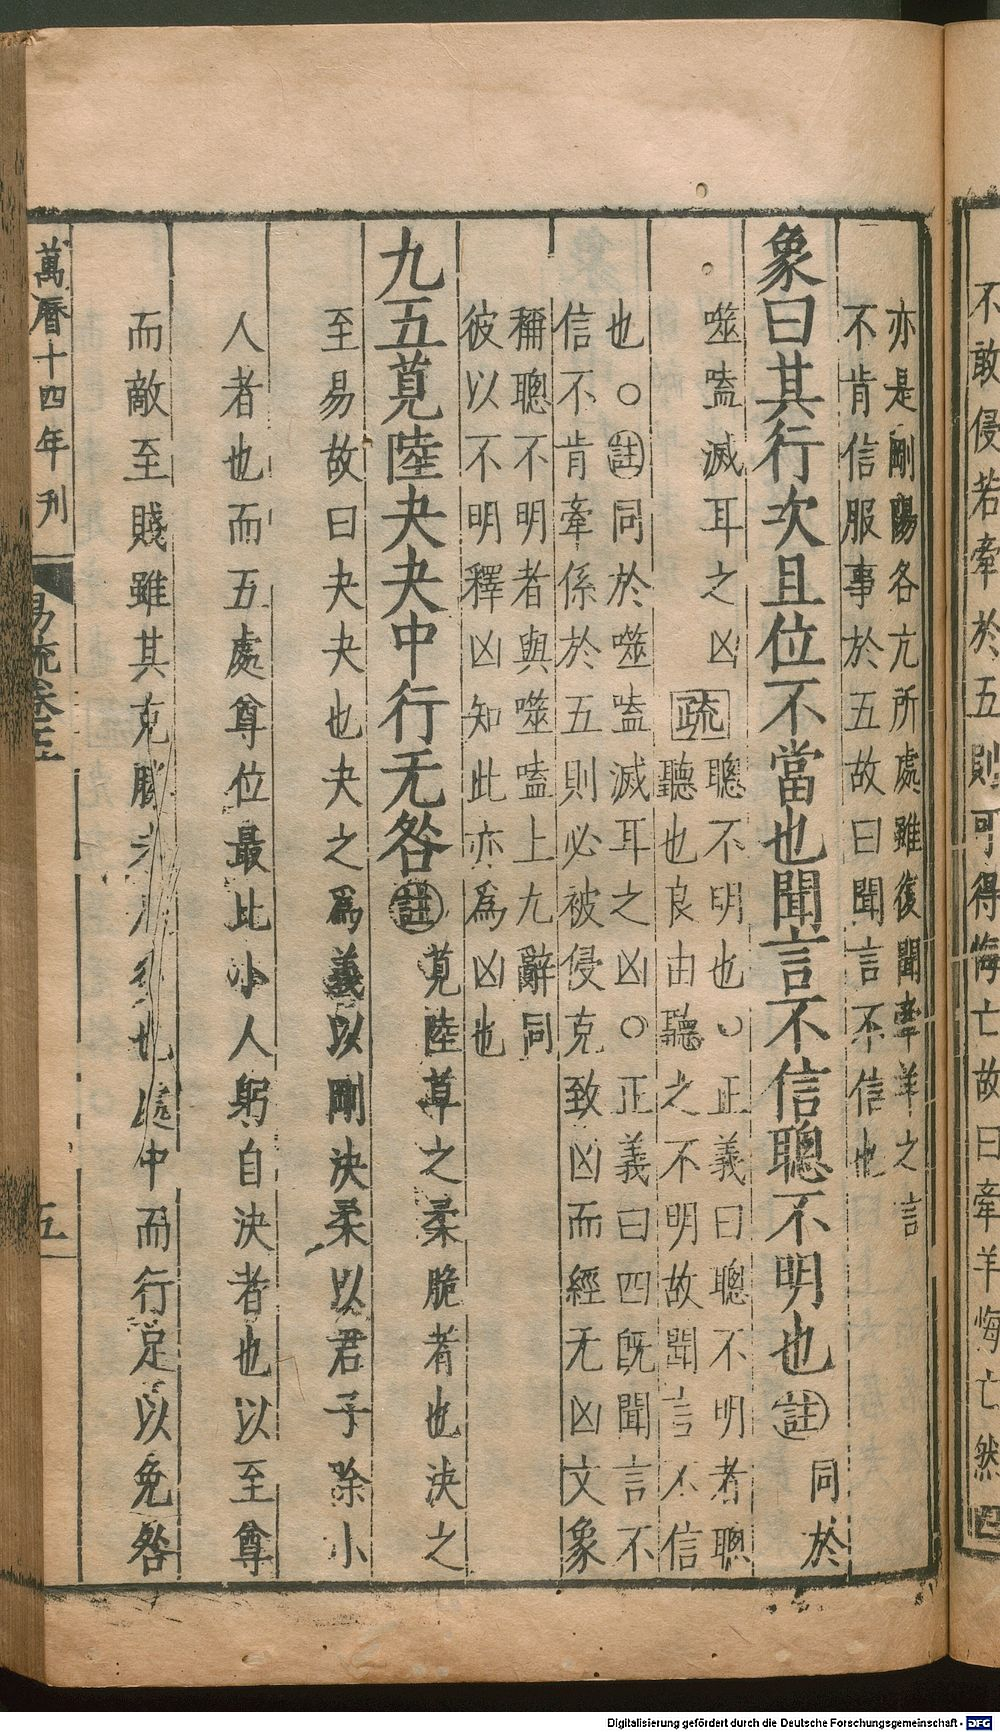 不敢侵若牽於五則可得悔亡故曰牽羊悔亡然四
亦是剛陽各亢所處雖復聞牽羊之言
不肯信服事於五故曰聞言不信也
象曰其行次且位不當也聞言不信聰不明也註同於
噬嗑滅耳之凶疏聰不明也○正義曰聰不明者聰
聽也良由聽之不明故聞言不信
也○註同於噬嗑滅耳之凶○正義曰四既聞言不
信不肯牽係於五則必被侵克致凶而經无凶文象
稱聰不明者與噬嗑上九辭同
彼以不明釋凶知此亦為凶也
九五莧陸夬夬中行无咎註莧陸草之柔脆者也決之
至易故曰夬夬也夬之為義以剛決柔以君子除小
人者也而五處尊位最比小人躬自決者也以至尊
而敵至賤雖其克勝未足多也處中而行足以免咎
萬曆十四年刋
易疏卷五
五
Digitalisierung gefördert durch die Deutsche Forschungsgemeinschaft - DFG